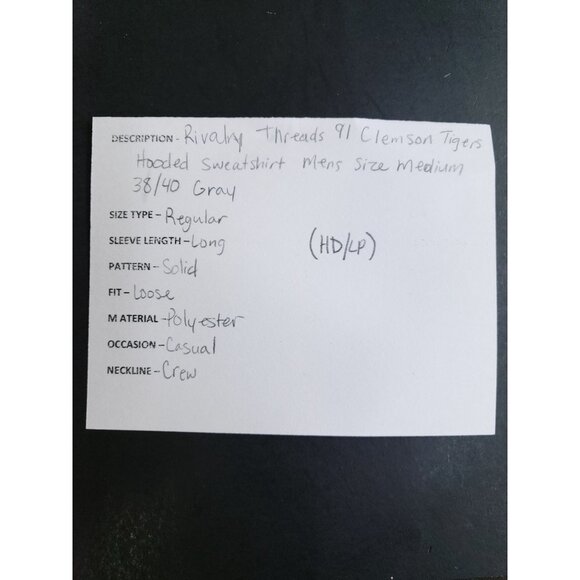 DESCRIPTION - Rivalry Threads 91 Clemson Tigers
Hooded Sweatshirt Mens Size Medium
38/40 Gray
SIZE TYPE - Regular
SLEEVE LENGTH - Long
(HD/LP)
PATTERN - Solid
FIT - Loose
MATERIAL - Polyester
OCCASION - Casual
NECKLINE - Crew